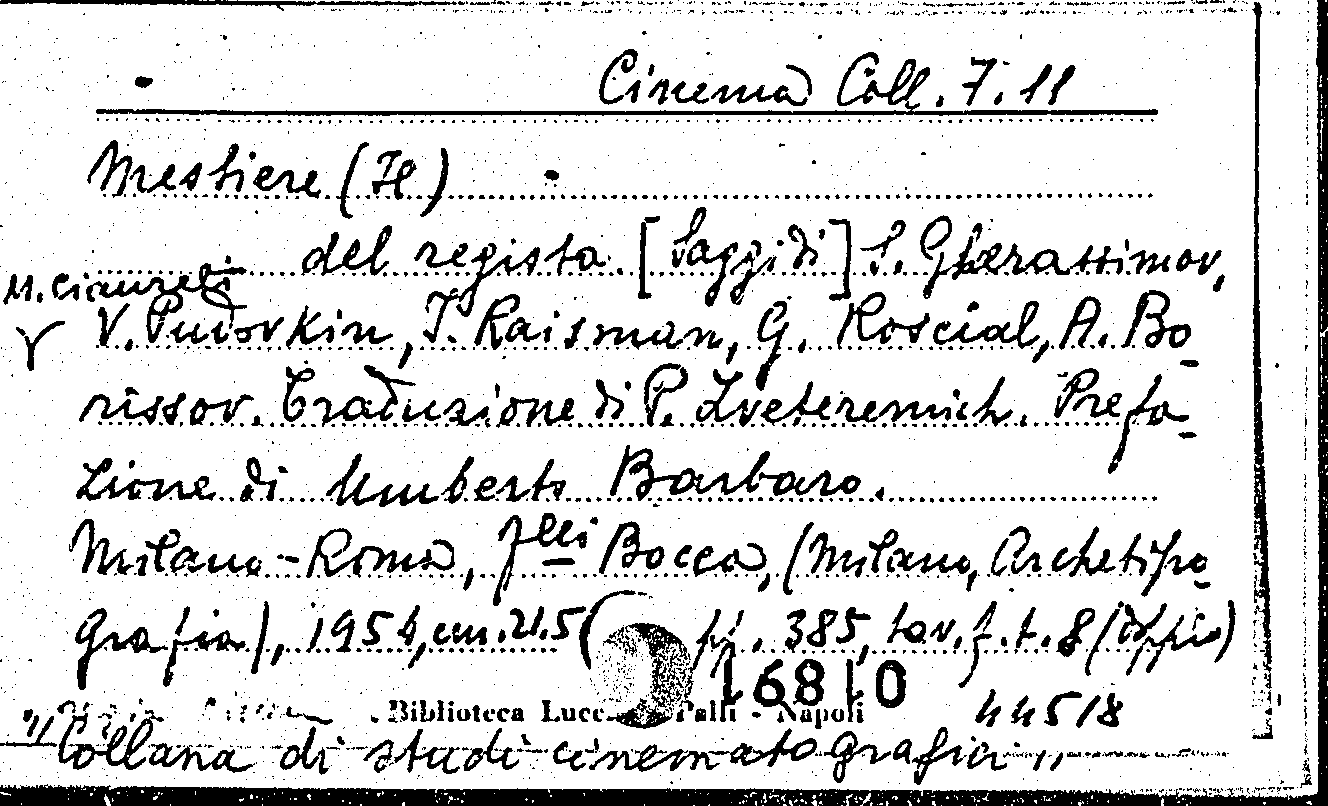 Cinema Coll. 7.11
Mestiere (Il)
del regista. [Saggi di] S. Gherassimov,
M. Ciaureli
V. Pudovkin, J. Raisman, G. Roscial, A. Bo-
rissov. Traduzione di P. Zveteremich. Prefa-
zione di Umberto Barbaro.
Milano-Roma, F.lli Bocca, (Milano, Archetipo-
grafia), 1954, cm. 21.5 pp. 385, tav. f. t. 8 (doppie)
Biblioteca Lucc Palli - Napoli
44518
"Collana di studi cinematografici"